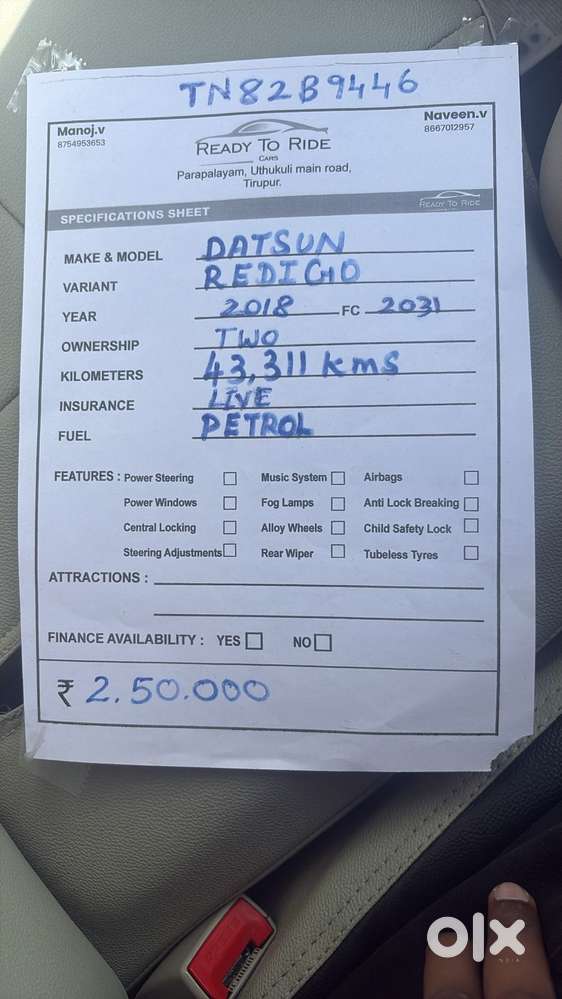 TN82B9446
Manoj.v Naveen.v
8754953653 8667012957
READY TO RIDE
CARS
Parapalayam, Uthukuli main road,
Tirupur.
SPECIFICATIONS SHEET READY TO RIDE
MAKE & MODEL DATSUN
VARIANT REDIGO
YEAR 2018 FC 2031
OWNERSHIP TWO
KILOMETERS 43,311 kms
INSURANCE LIVE
FUEL PETROL
FEATURES : Power Steering Music System Airbags
Power Windows Fog Lamps Anti Lock Breaking
Central Locking Alloy Wheels Child Safety Lock
Steering Adjustments Rear Wiper Tubeless Tyres
ATTRACTIONS :
FINANCE AVAILABILITY : YES NO
₹ 2.50.000
olx
INDIA